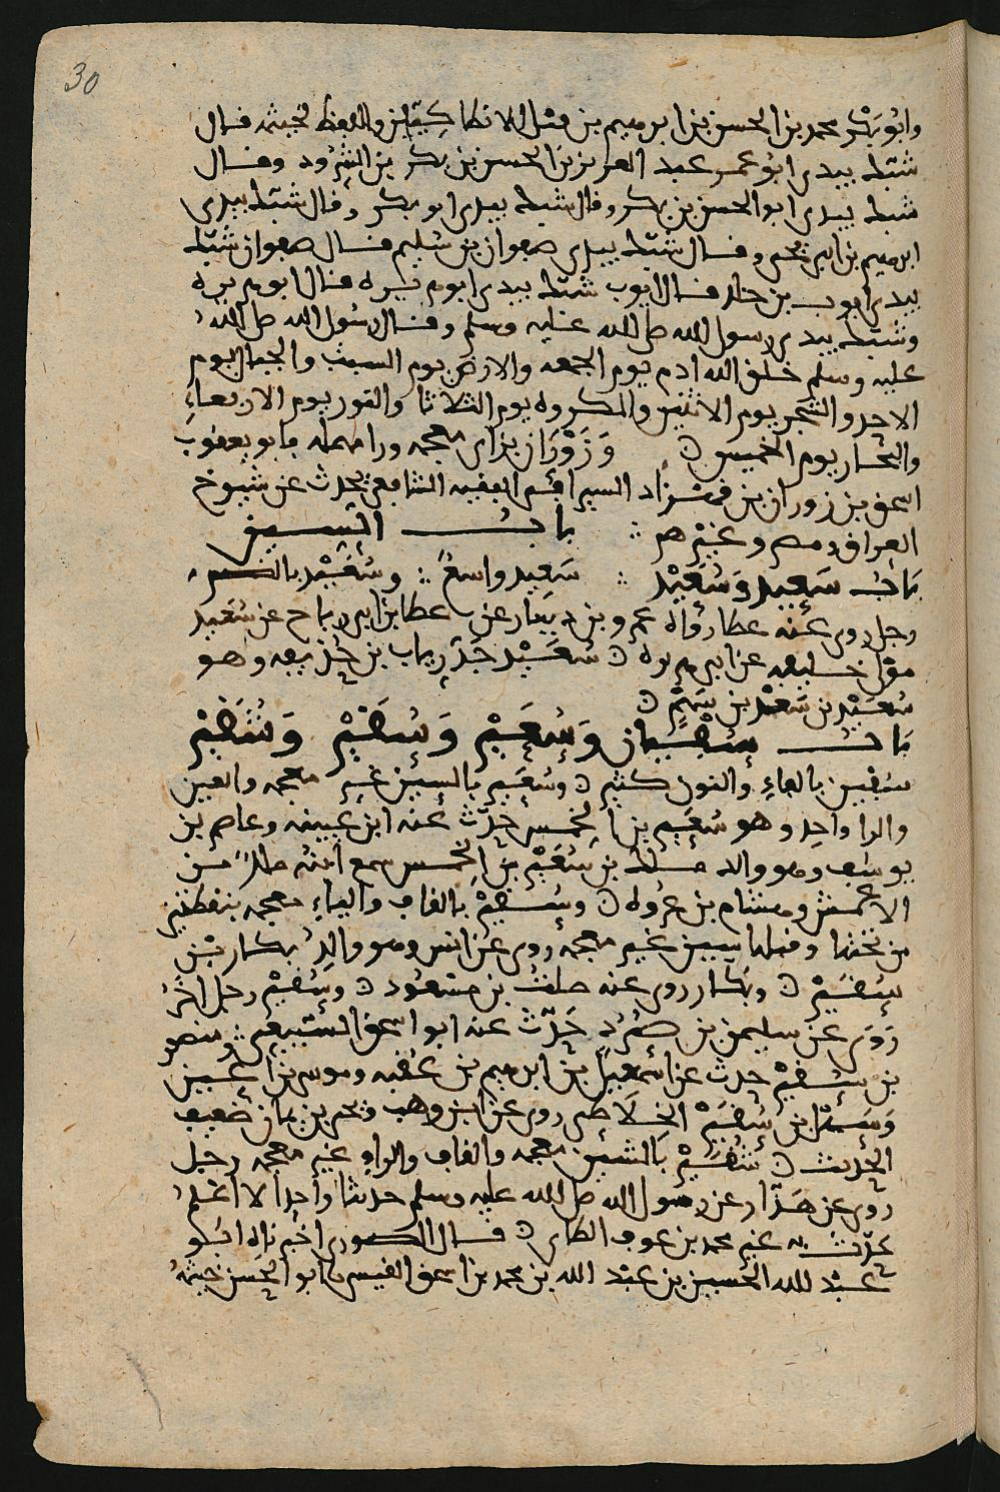 30
وابو بكر محمد بن الحسن بن ابرهيم بن فيل الانطاكيان واللفظ لخيثمه قال
شبك بيدي ابو عمر عبد العزيز بن الحسن بن بكر بن الشرود وقال
شبك بيدي ابو الحسن بن بكر وقال شبك بيدي ابو بكر وقال شبك بيدي
ابرهيم بن ابي يحيى وقال شبك بيدي صفوان بن سليم قال صفوان شبك
بيدي ايوب بن خالد قال ايوب شبك بيدي ابو هريره قال ابو هريره
وشبك بيدي رسول الله صلى الله عليه وسلم وقال رسول الله صلى الله
عليه وسلم خلق الله ادم يوم الجمعه والارض يوم السبت والجبال يوم
الاحد والشجر يوم الاثنين والمكروه يوم الثلاثا والنور يوم الاربعاء
والبحار يوم الخميس وزوران بزاى معجمه ورا مهمله فابو يعقوب
اسحق بن زوران بن السيرافي الفقيه الشافعي يحدث عن شيوخ
العراق ومصر وغيرهم باب السين
باب سعيد وسعيد سعيد واسع وسعيد بالضم
رجل روى عنه عطا رواه عمرو بن دينار عن عطا بن ابي رباح عن سعيد
مولى خليفه عن ابي هريره سعيد جد رباب بن حذيفه وهو
سعيد بن سعد بن سهم
باب سفين وسعير وسقير وشقير
سفين بالفاء والنون كثير وسعير بالسين غير معجمه والعين
والرا واحد وهو سعير بن الخمس حدث عنه ابن عيينه وعاصم بن
يوسف وهو والد ملك بن سعير بن الخمس سمع ابنه ملك من
الاعمش وهشام بن عروه وسقير بالقاف والياء معجمه بنقطتين
من تحتها وقبلها سين غير معجمه روى عن انس وهو والد بكار بن
سقير وبكار روى عنه صلت بن مسعود وسقير رجل اخر
روى عن سليمن بن صرد حدث عنه ابو اسحق السبيعي
بن سقير حدث عن اسمعيل بن ابرهيم بن عقبه وموسى بن اعين
بن سقير الخلاطي روى عن ابن وهب ضعيف
الحديث شقير بالشين معجمه والقاف والراء غير معجمه رجل
روى عن هدار عن رسول الله صلى الله عليه وسلم حديثا واحدا لا اعلم
يحدث به غير محمد بن عوف الطائي قال الصوري اخبرناه ابو
عبد الله الحسين بن عبد الله بن محمد بن اسحق القيسي ابو الحسن خيثمه